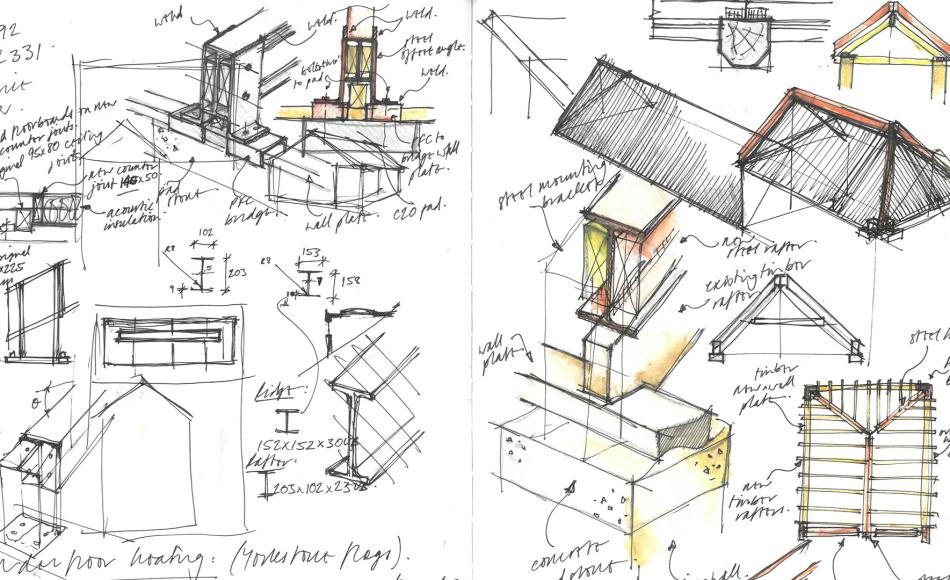 92
2331
weld
weld.
weld.
steel
offset angle.
weld.
to pad.
floorboards on new
counter joists.
95x80 ceiling
joists
new counter
joist 145x50
acoustic
insulation.
pad
stone
PFC
bridge.
wall plate.
C20 pad.
PFC to
bridge wall
plate.
original
x225
102
R8
203
9
153
R8
158
θ
Ridge:
152x152x30UC
Rafter:
203x102x23UB
underfloor heating: (Yorkstone flags).
steel mounting
bracket
new
steel rafter.
existing timber
rafter
wall
plate
timber
new wall
plate.
steel
new
timber
rafters.
concrete
padstone
wall.